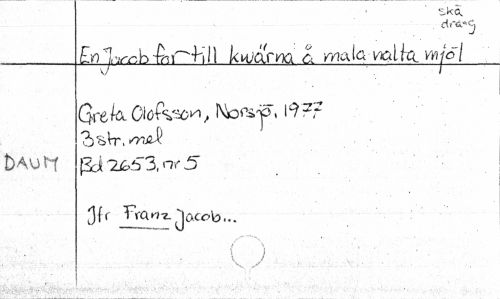 skä
dräng
En Jacob for till kwärna å mala nalta mjöl
Greta Olofsson, Norsjö, 1977
3 str. mel
DAUM Bd 2653, nr 5
Jfr Franz Jacob...